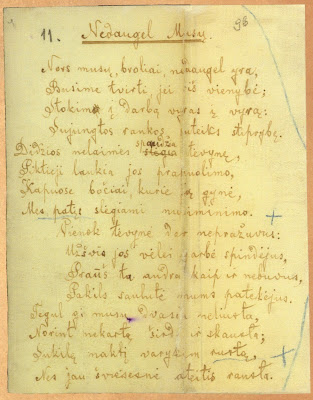 98
11. Nedaugel Musų.
Nors musų, broliai, nedaugel yra,
Busime tvirti jei bus vienybė;
Stokime į darbą vyras į vyrą:
Sujungtos rankos suteiks stiprybę.
Didžios nelaimės slegia spaudžia tevynę,
Piktieji laukia jos prapuolimo,
Kapuose bočiai, kurie ją gynė,
Mes patįs slegiami nusiminimo.
Vienok tevynė dar nepražuvus:
Užšvis jos vėlei garbė spindėjus,
Praūš ta audra kaip ir nebuvus,
Pakils saulutė mums patekėjus.
Tegul gi musų dvasė neliusta,
Norint nekartą širdį ir skausta;
Sukilę naktį varykim rustą,
Nes jau šviesesnė ateitis rausta.